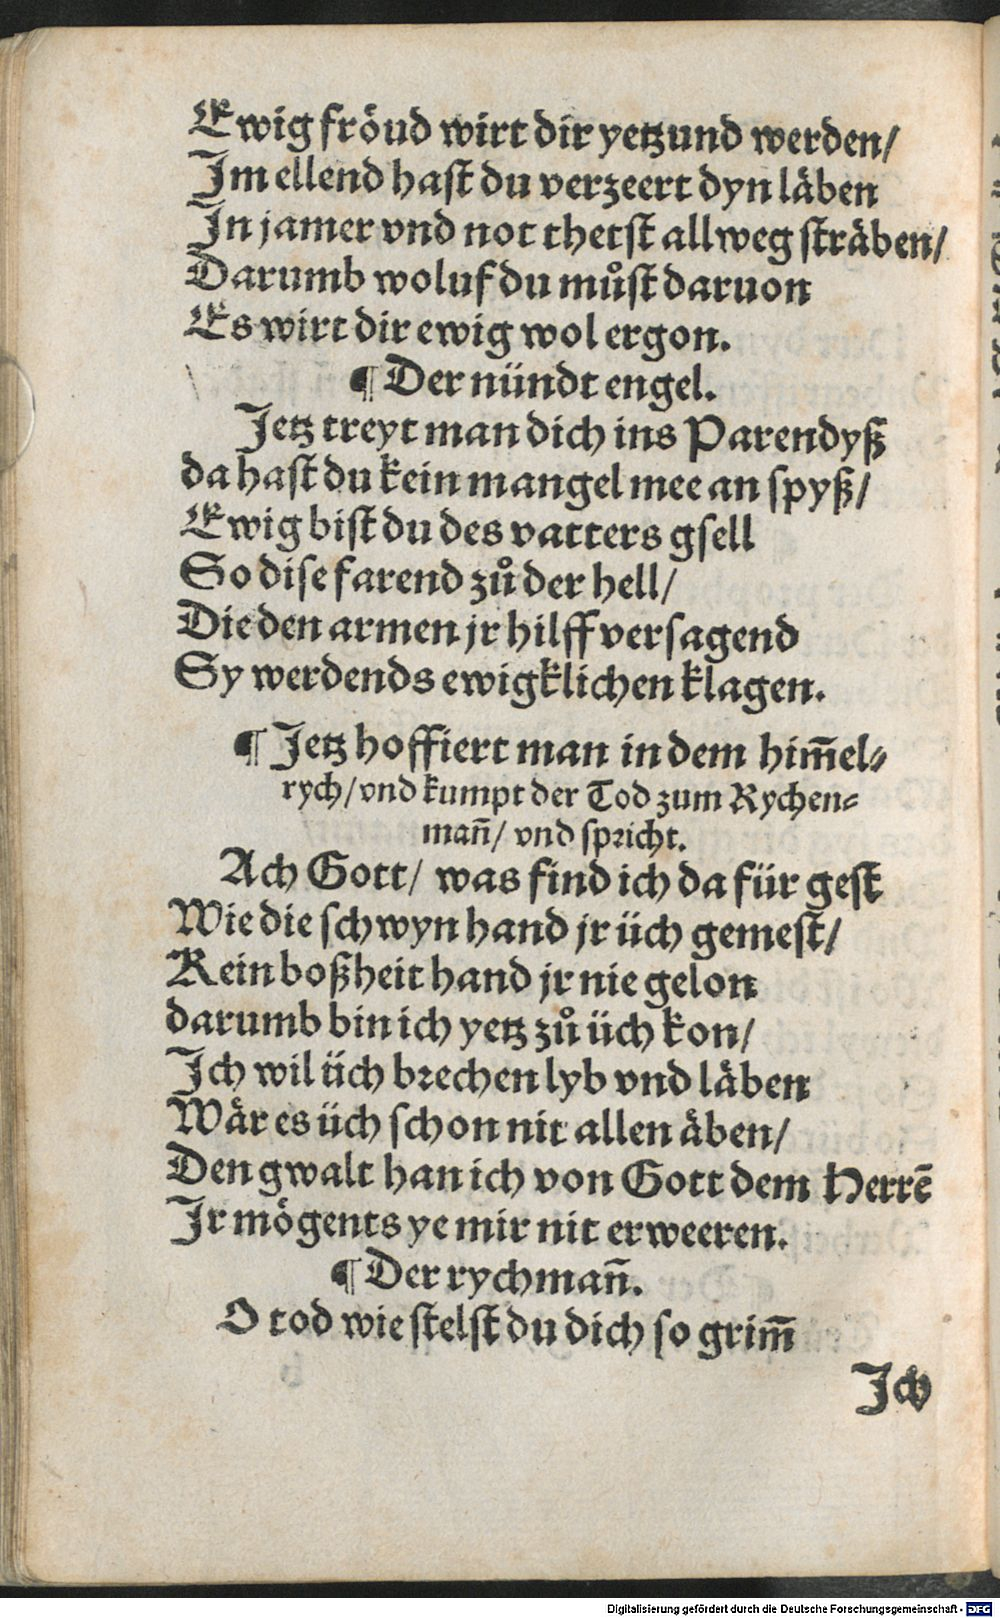 Ewig fröud wirt dir yetzund werden/
Im ellend hast du verzeert dyn läben
In jamer vnd not thetst allweg sträben/
Darumb woluf du můst daruon
Es wirt dir ewig wol ergon.
¶ Der nündt engel.
Jetz treyt man dich ins Parendyß
da hast du kein mangel mee an spyß/
Ewig bist du des vatters gsell
So dise farend zů der hell/
Die den armen jr hilff versagend
Sy werdends ewigklichen klagen.
¶ Jetz hoffiert man in dem him̄el⸗
rych/ vnd kumpt der Tod zum Rychen⸗
man̄/ vnd spricht.
Ach Gott/ was find ich da für gest
Wie die schwyn hand jr üch gemest/
Kein boßheit hand jr nie gelon
darumb bin ich yetz zů üch kon/
Ich wil üch brechen lyb vnd läben
Wär es üch schon nit allen äben/
Den gwalt han ich von Gott dem Herrē
Ir mögents ye mir nit erweeren.
¶ Der rychman̄.
O tod wie stelst du dich so grim̄
Ich
Digitalisierung gefördert durch die Deutsche Forschungsgemeinschaft - DFG